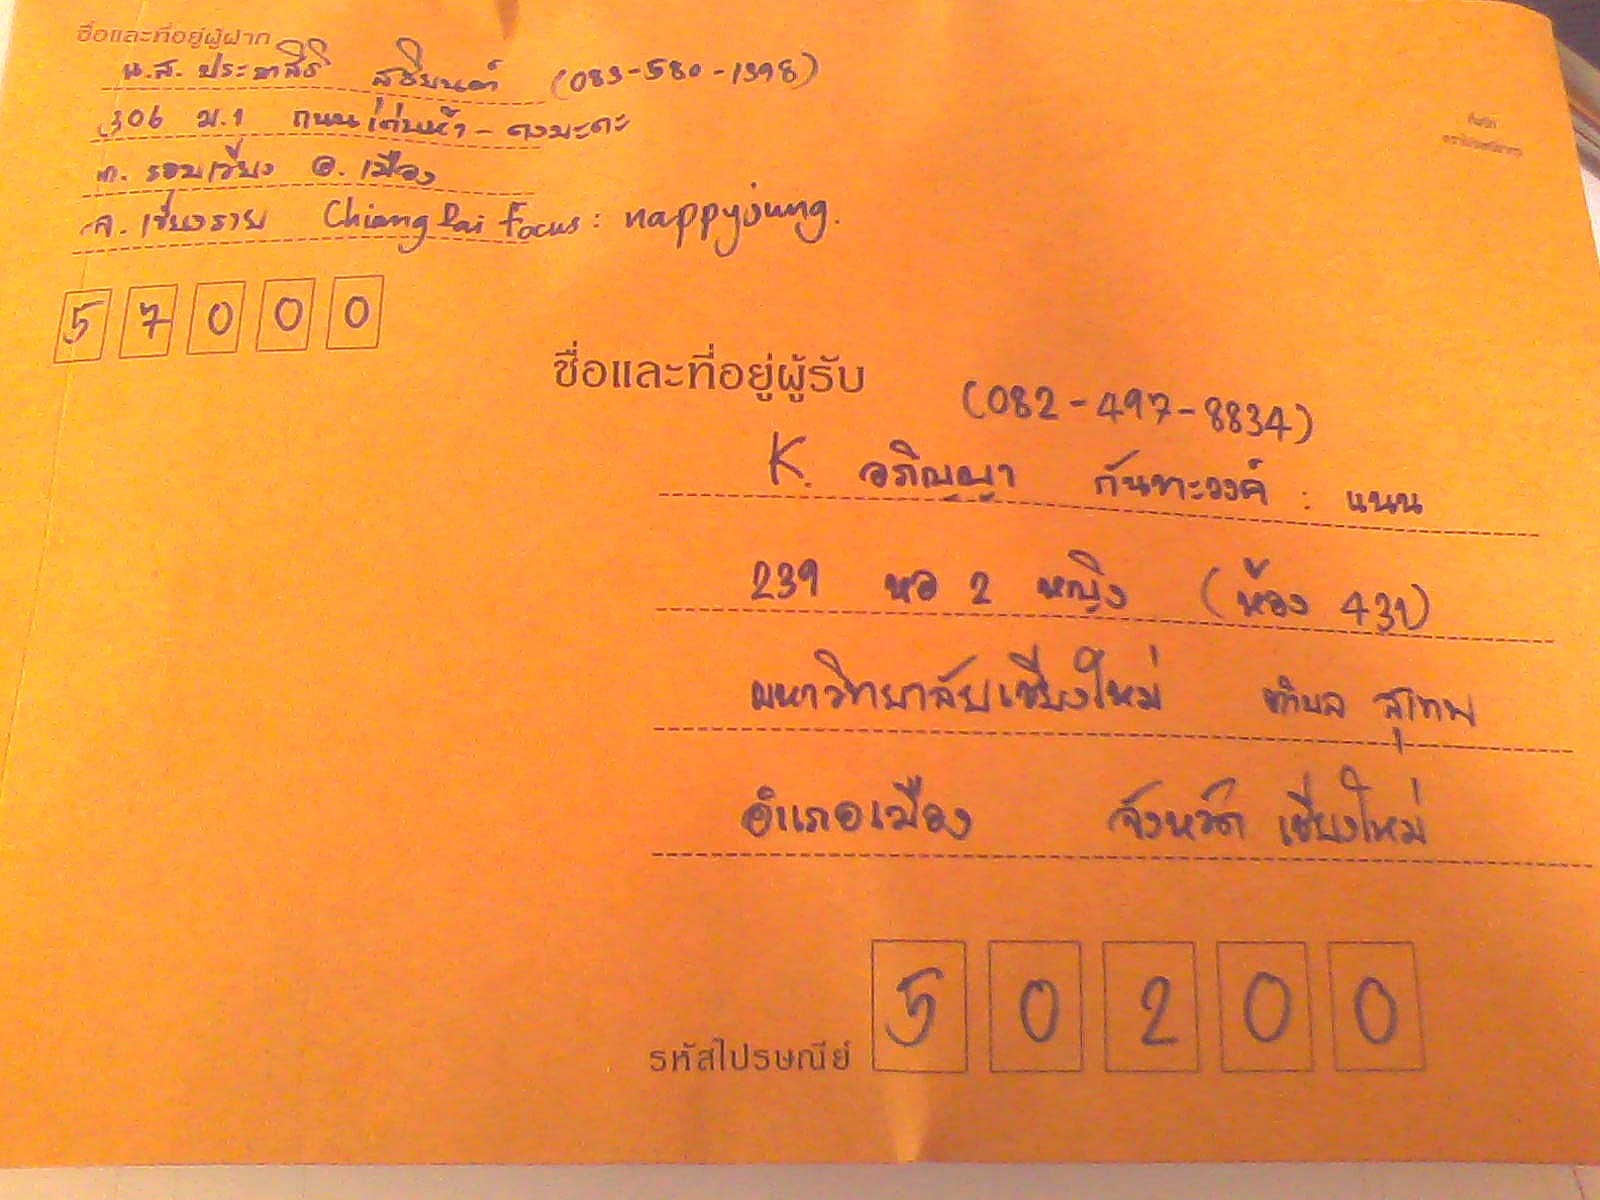 ชื่อและที่อยู่ผู้ฝาก
น.ส. (083-580-1398)
306 ม.1 ถนน เด่นห้า - ดงมะดะ
ต. รอบเวียง อ. เมือง
จ. เชียงราย Chiang Rai focus: nappyjung.
57000
ชื่อและที่อยู่ผู้รับ
(082-497-8834)
K. อภิญญา กันทะวงค์ : แนน
239 หอ 2 หญิง (ห้อง 431)
มหาวิทยาลัยเชียงใหม่ ตำบล สุเทพ
อำเภอเมือง จังหวัด เชียงใหม่
รหัสไปรษณีย์ 50200